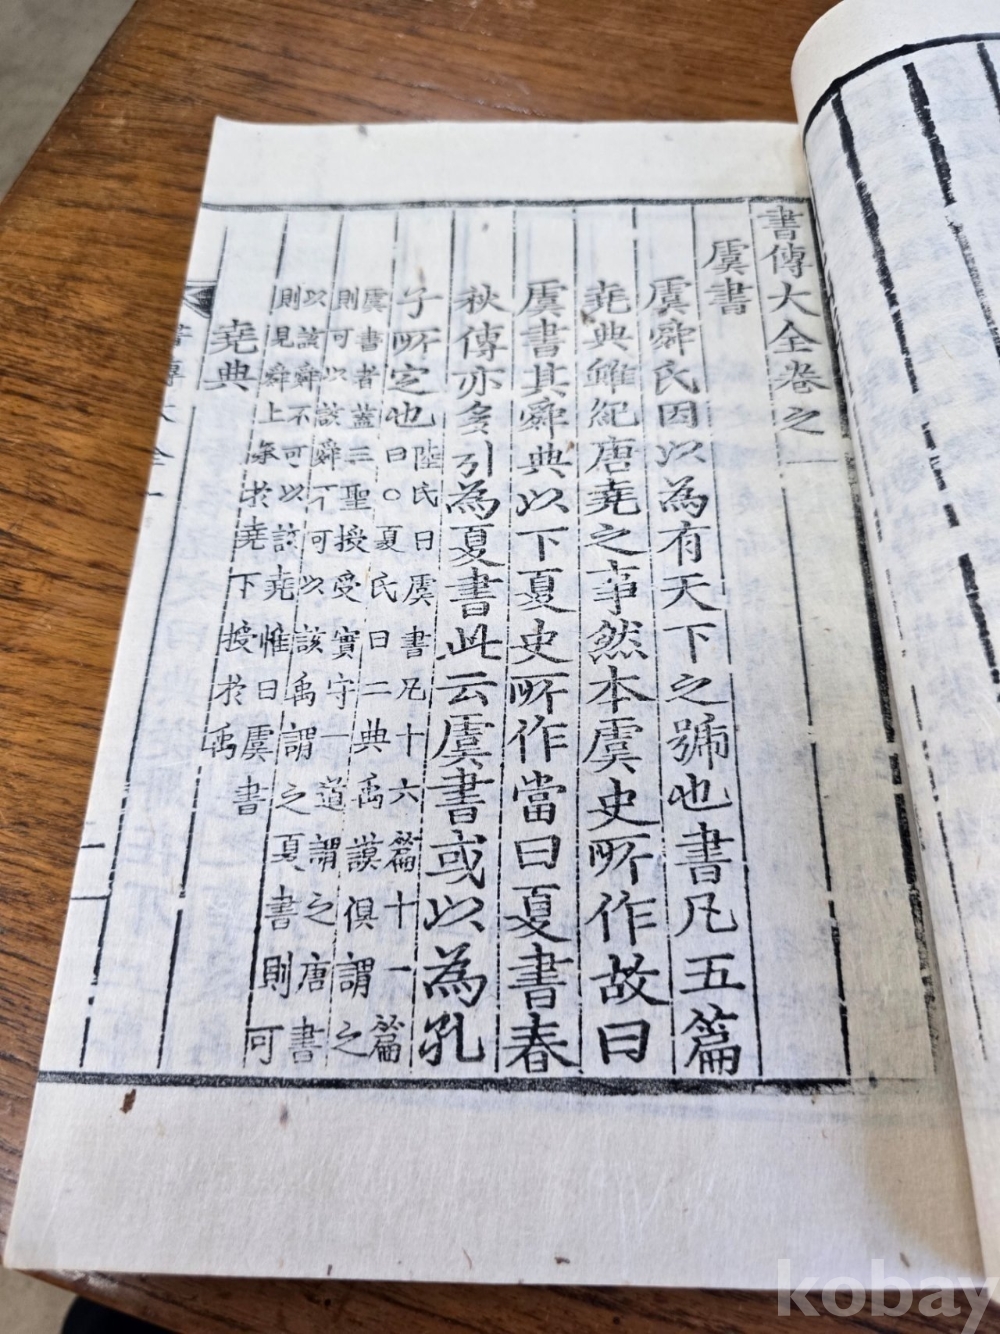 書傳大全卷之一
虞書
虞舜氏因以為有天下之號也書凡五篇
堯典雖紀唐堯之事然本虞史所作故曰
虞書其舜典以下夏史所作當曰夏書春
秋傳亦多引為夏書此云虞書或以為孔
子所定也陸氏曰虞書凡十六篇十一篇
曰○夏氏曰二典禹謨俱謂之
虞書者蓋三聖授受實守一道謂之唐書
則可以該舜不可以該禹謂之夏書則可
以該舜不可以該堯惟曰虞書
則見舜上承於堯下授於禹
堯典
書傳大全 一
kobay